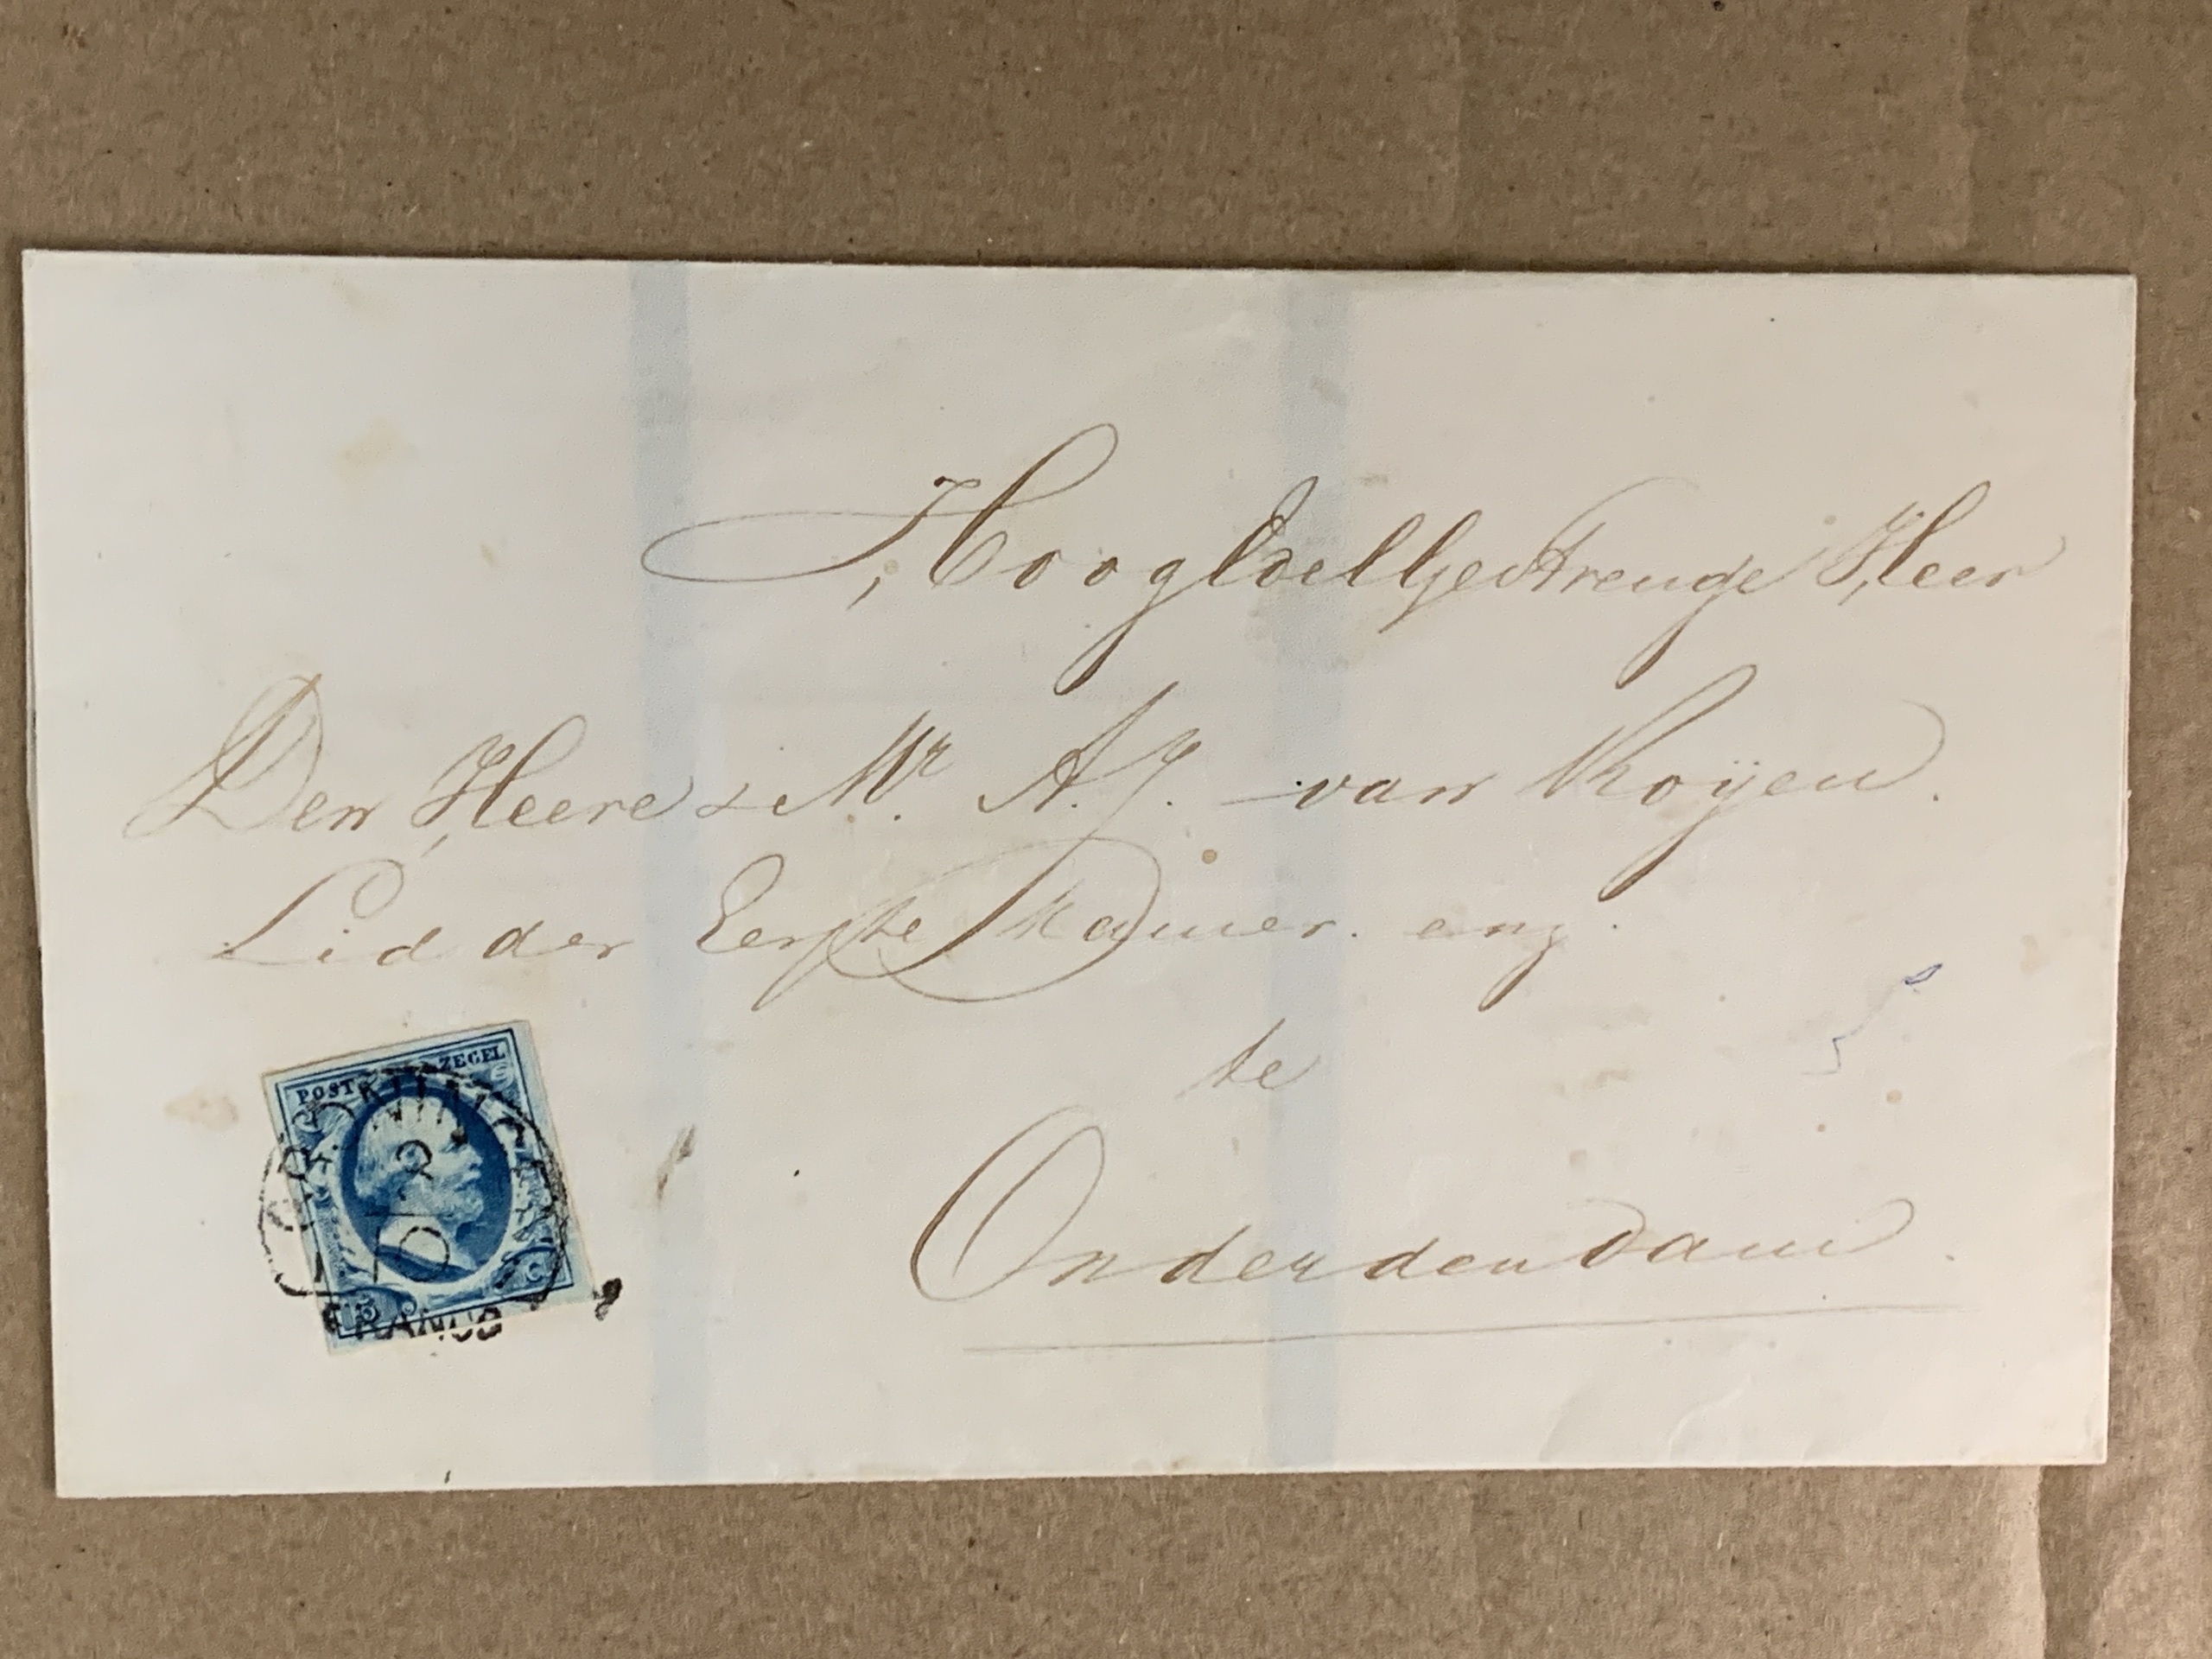 HoogEdelGestrenge Heer
Den Heere Mr. A. J. van Royen.
Lid der Eerste Kamer. enz.
te
Onderdendam.
POST ZEGEL
5 C
GRONINGEN
FRANCO